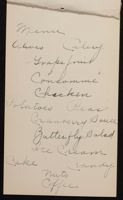 Menu
Olives Celery
Grapefruit
Consommé
Chicken
Potatoes Peas
Cranberry Sauce
Butterfly Salad
Ice Cream
Cake Candy
Nuts
Coffee